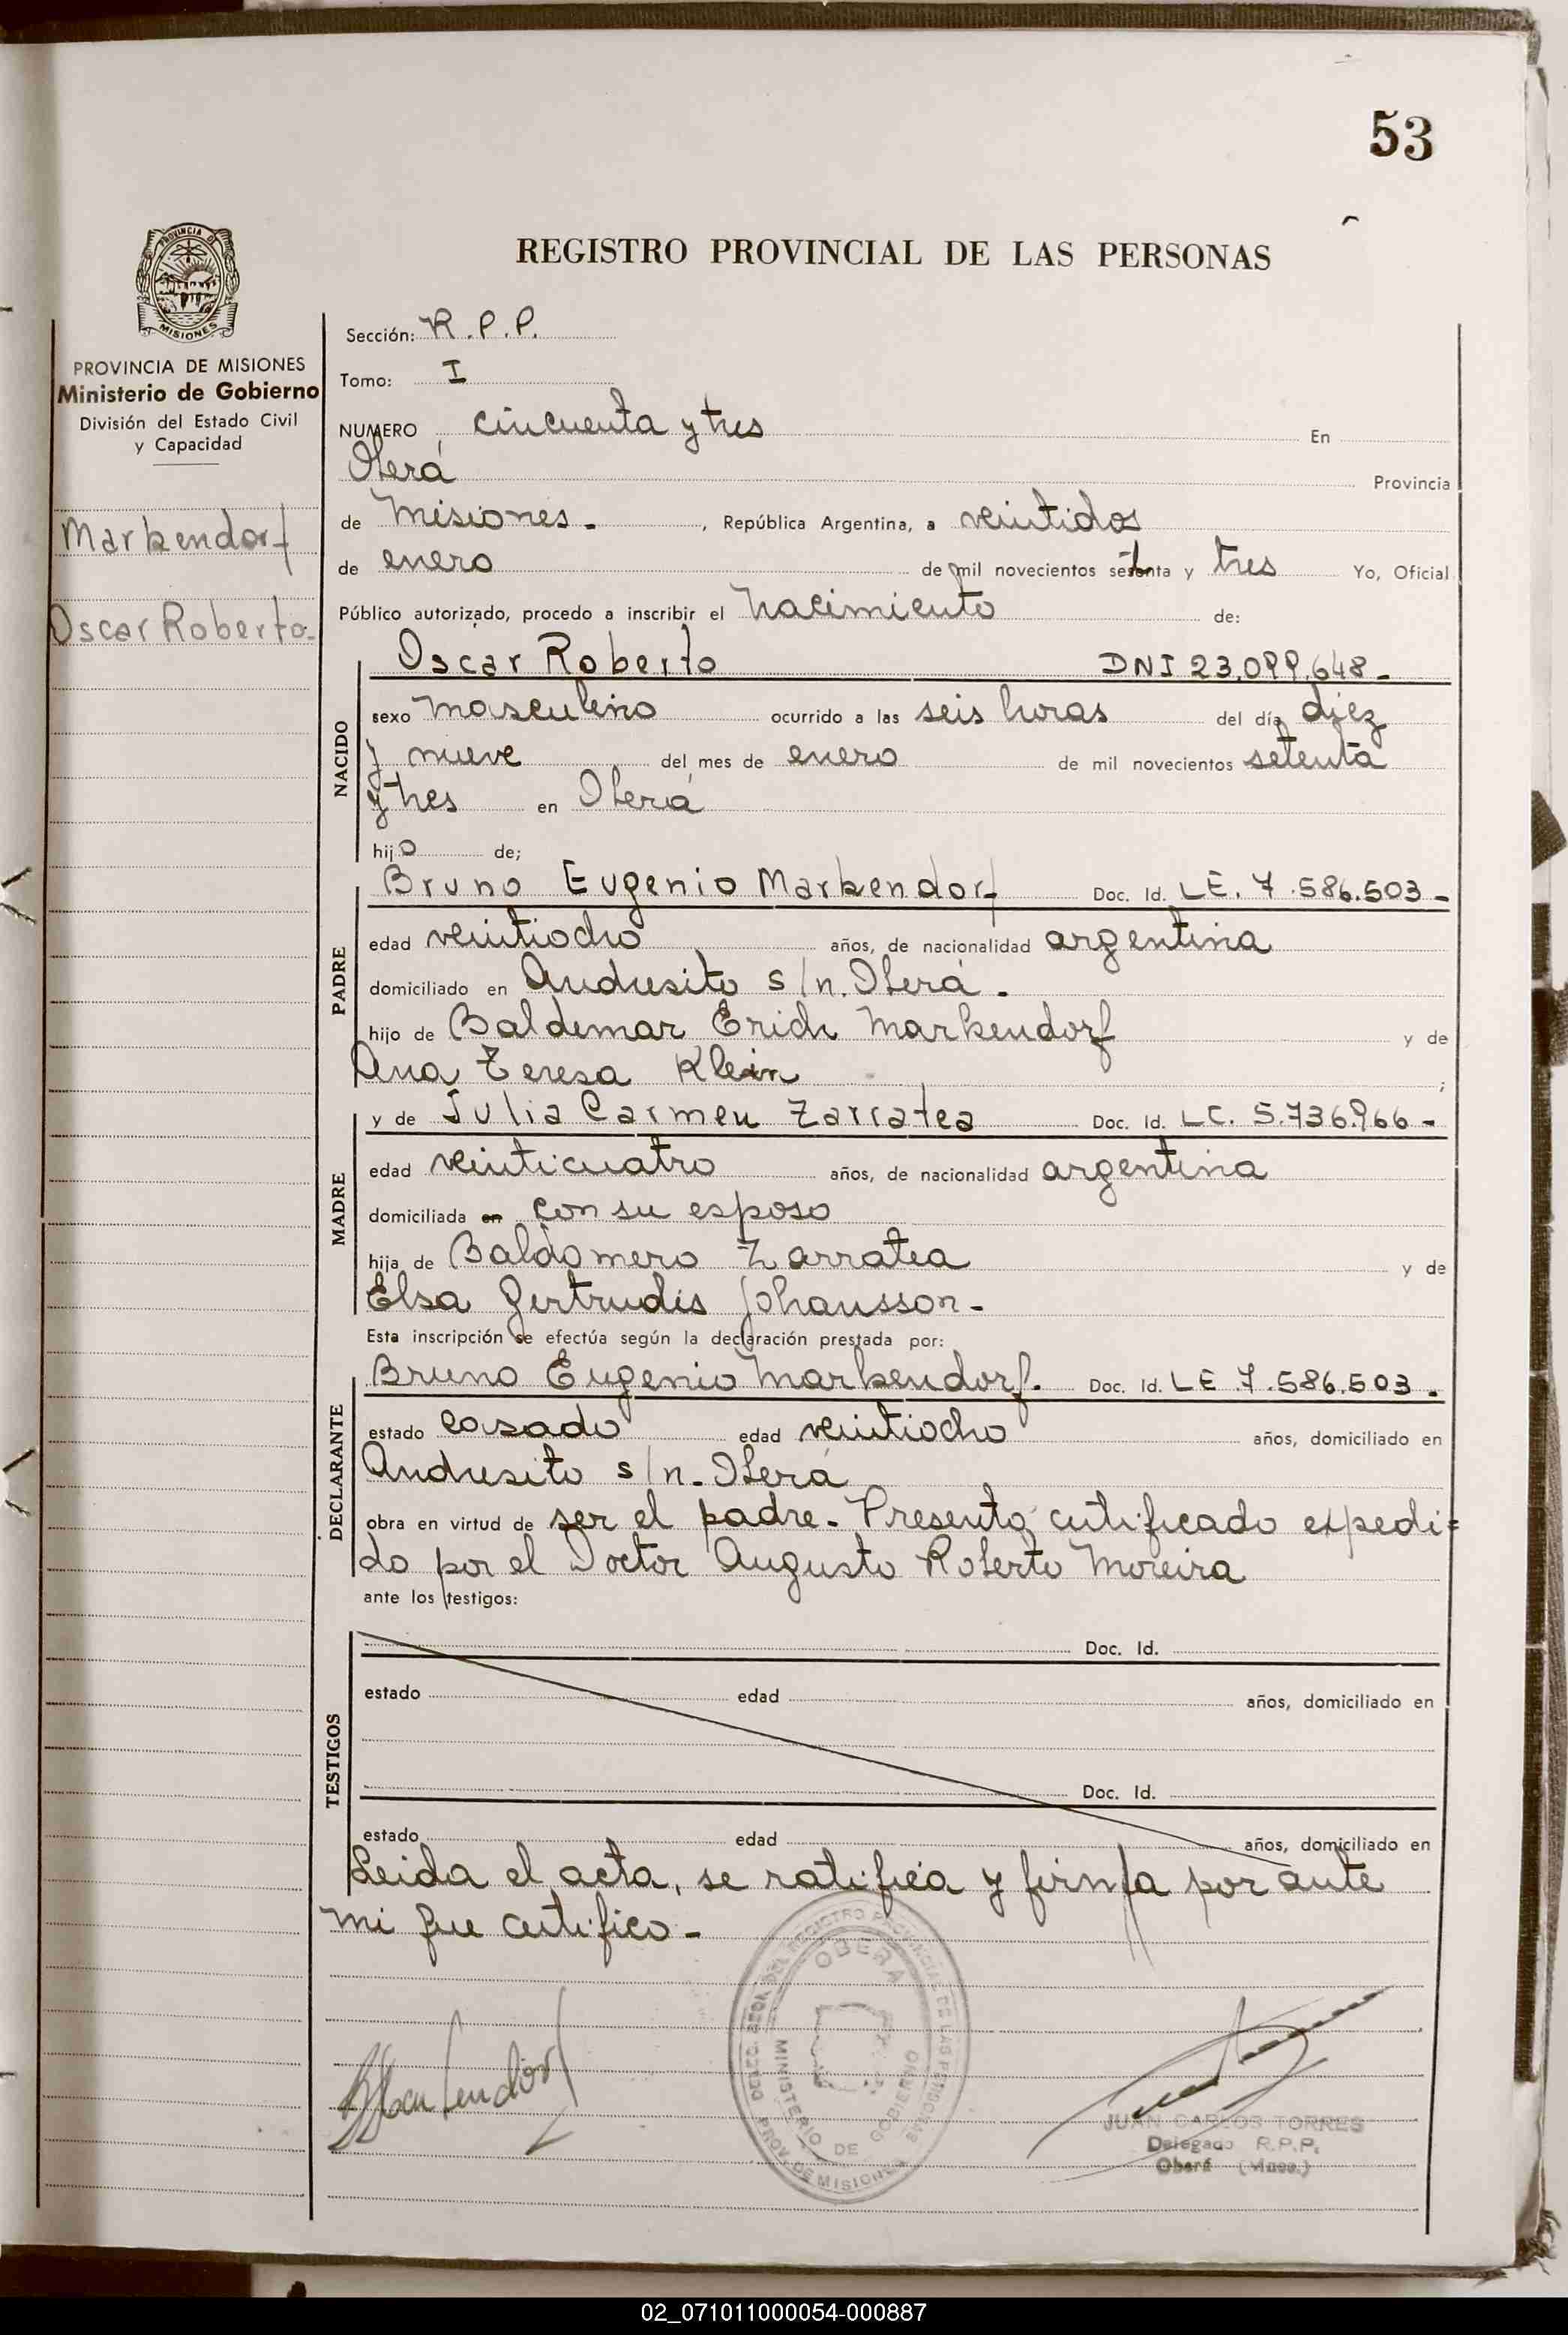 53
REGISTRO PROVINCIAL DE LAS PERSONAS
PROVINCIA DE MISIONES
PROVINCIA DE MISIONES
Ministerio de Gobierno
División del Estado Civil
y Capacidad
Markendorf
Oscar Roberto-
Sección: R.P.P.
Tomo: I
NUMERO cincuenta y tres En
Oberá Provincia
de Misiones.- , República Argentina, a veintidos
de enero de mil novecientos setenta y tres Yo, Oficial
Público autorizado, procedo a inscribir el nacimiento de:
NACIDO
Oscar Roberto DNI 23.099.648-
sexo masculino ocurrido a las seis horas del día diez
y nueve del mes de enero de mil novecientos setenta
y tres en Oberá
hijo de;
PADRE
Bruno Eugenio Markendorf Doc. Id. LE. 7.586.503-
edad veintiocho años, de nacionalidad argentina
domiciliado en Andresito s/n. Oberá.
hijo de Baldemar Erich Markendorf y de
Ana Teresa Klein ;
MADRE
y de Julia Carmen Zarratea Doc. Id. LC. 5.736.966-
edad veinticuatro años, de nacionalidad argentina
domiciliada en con su esposo
hija de Baldomero Zarratea y de
Elsa Gertrudis Johansson-
Esta inscripción se efectúa según la declaración prestada por:
DECLARANTE
Bruno Eugenio Markendorf. Doc. Id. LE 7.586.503.
estado casado edad veintiocho años, domiciliado en
Andresito s/n. Oberá
obra en virtud de ser el padre. Presentó certificado expedi=
do por el Doctor Augusto Roberto Moreira
ante los testigos:
TESTIGOS
Doc. Id.
estado edad años, domiciliado en
Doc. Id.
estado edad años, domiciliado en
Leida el acta, se ratifica y firma por ante
mi que certifico-
Markendorf
OBERA
MINISTERIO DE GOBIERNO
PROV. DE MISIONES
JUAN CARLOS TORRES
Delegado R.P.P.
Oberá (Mnes.)
02_071011000054-000887